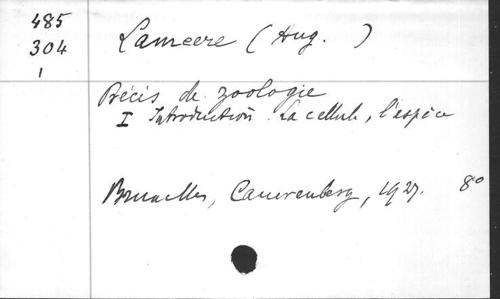 485
304
1
Lameere (Aug. )
Précis de zoologie
I Introduction. La cellule, l'espèce
Bruxelles, Cauwenberg, 1927. 8º